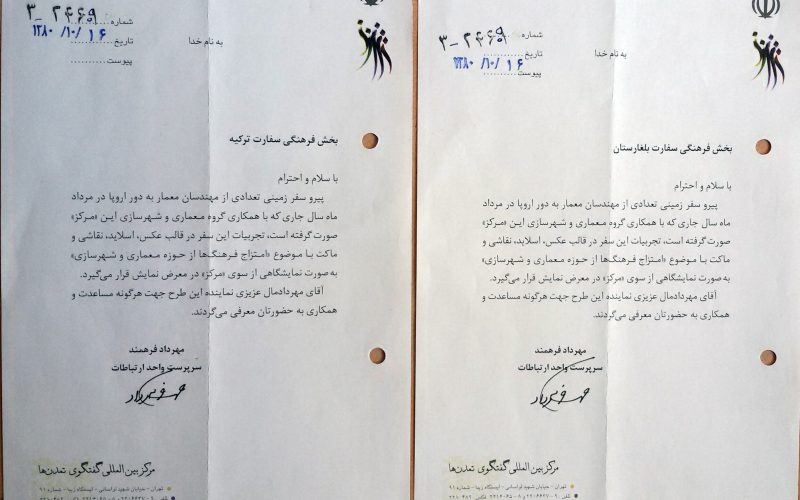 شماره ۳ــ۲۴۶۹
تاریخ ۱۳۸۰/۱۰/۱۶
پیوست
به نام خدا
بخش فرهنگی سفارت ترکیه
با سلام و احترام
پیرو سفر زمینی تعدادی از مهندسان معمار به دور اروپا در مرداد
ماه سال جاری که با همکاری گروه معماری و شهرسازی این «مرکز»
صورت گرفته است، تجربیات این سفر در قالب عکس، اسلاید، نقاشی و
ماکت با موضوع «امتزاج فرهنگ‌ها از حوزه معماری و شهرسازی»
به صورت نمایشگاهی از سوی «مرکز» در معرض نمایش قرار می‌گیرد.
آقای مهردادمال عزیزی نماینده این طرح جهت هرگونه مساعدت و
همکاری به حضورتان معرفی می‌گردند.
مهرداد فرهمند
سرپرست واحد ارتباطات
مرکز بین المللی گفتگوی تمدن‌ها
تهران - خیابان شهید لواسانی - ایستگاه زیبا - شماره ۹۱
شماره ۳ــ۲۴۶۹
تاریخ ۱۳۸۰/۱۰/۱۶
پیوست
به نام خدا
بخش فرهنگی سفارت بلغارستان
با سلام و احترام
پیرو سفر زمینی تعدادی از مهندسان معمار به دور اروپا در مرداد
ماه سال جاری که با همکاری گروه معماری و شهرسازی این «مرکز»
صورت گرفته است، تجربیات این سفر در قالب عکس، اسلاید، نقاشی و
ماکت با موضوع «امتزاج فرهنگ‌ها از حوزه معماری و شهرسازی»
به صورت نمایشگاهی از سوی «مرکز» در معرض نمایش قرار می‌گیرد.
آقای مهردادمال عزیزی نماینده این طرح جهت هرگونه مساعدت و
همکاری به حضورتان معرفی می‌گردند.
مهرداد فرهمند
سرپرست واحد ارتباطات
مرکز بین المللی گفتگوی تمدن‌ها
تهران - خیابان شهید لواسانی - ایستگاه زیبا - شماره ۹۱